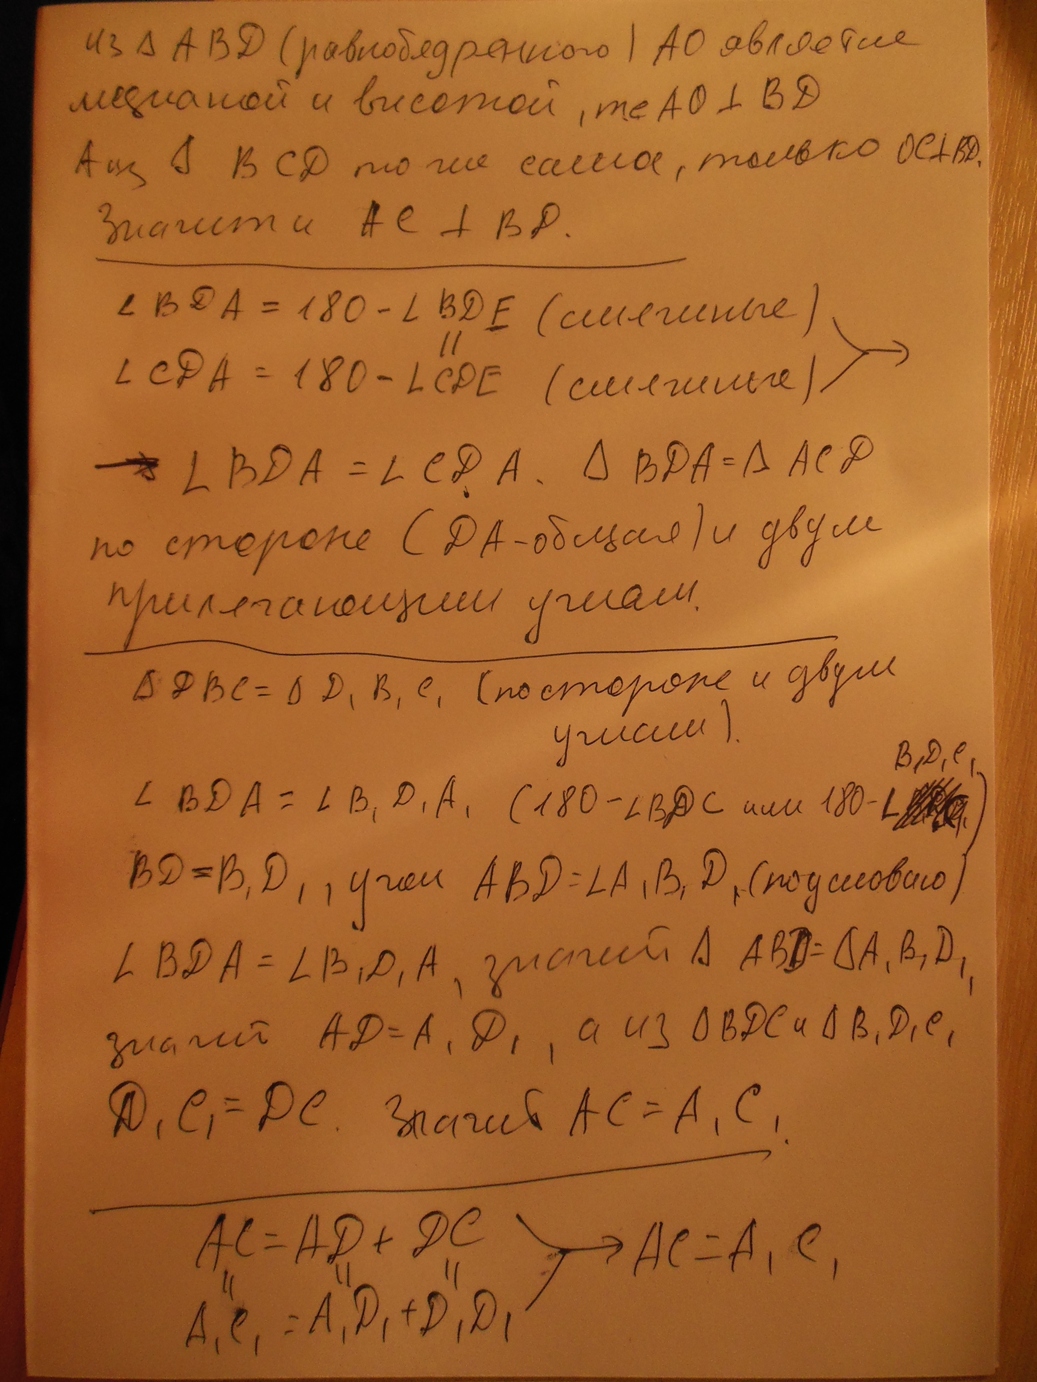 из Δ ABD (равнобедренного) AO является
медианой и висотой, те AO ⊥ BD
А из Δ BCD то же сама, только OC⊥BD.
Значит и AC ⊥ BD.
∠BDA = 180 - ∠BDE (смежные)
=
∠CDA = 180 - ∠CDE (смежные)
→ ∠BDA = ∠CDA. Δ BDA = Δ ACD
по стороне (DA-общая) и двум
прилегающим углам.
Δ DBC = Δ D₁B₁C₁ (по стороне и двум
углам).
B₁D₁C₁
∠BDA = ∠B₁D₁A₁ (180-∠BDC или 180-∠)
BD=B₁D₁, угол ABD=∠A₁B₁D₁ (по условию)
∠BDA = ∠B₁D₁A, значит Δ ABD=ΔA₁B₁D₁,
значит AD=A₁D₁, а из ΔBDC и ΔB₁D₁C₁
D₁C₁=DC. Значит AC=A₁C₁.
AC=AD+DC → AC=A₁C₁
= = =
A₁C₁ = A₁D₁+D₁D₁